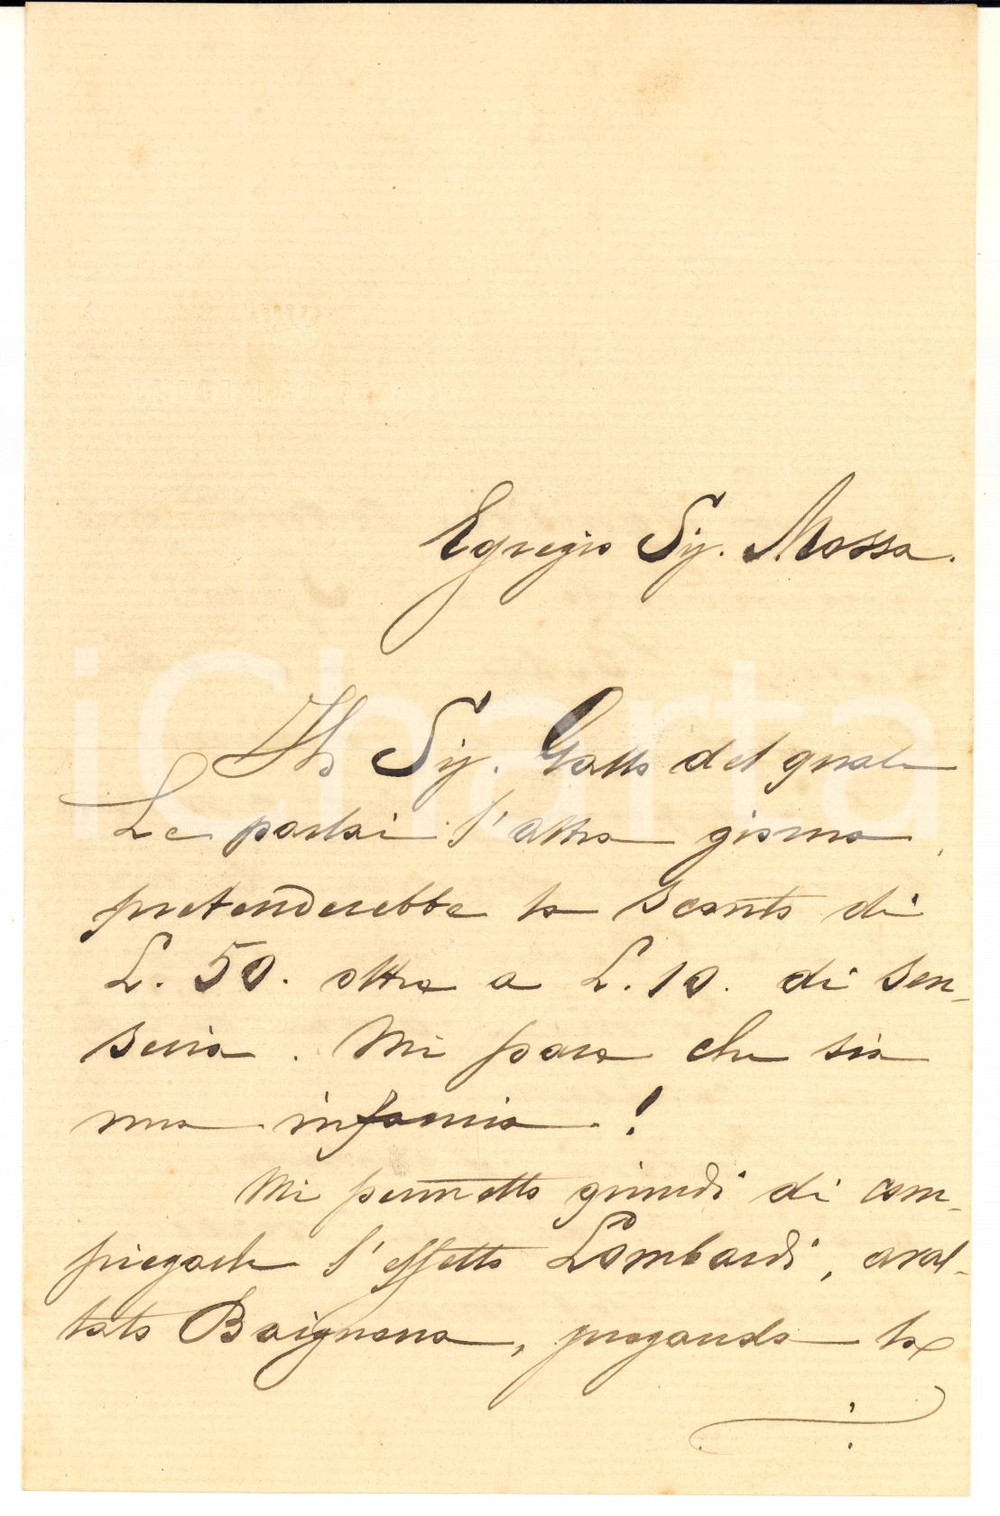 Egregio Sig. Mossa.
Il Sig. Gallo del quale
Le parlai l'altro giorno,
pretenderebbe lo sconto di
L. 50. oltre a L. 10. di sen-
seria. Mi pare che sia
una infamia!
Mi permetto quindi di com-
piegarle l'effetto Lombardi, aval-
lato Baignera, pregando La
iCharta